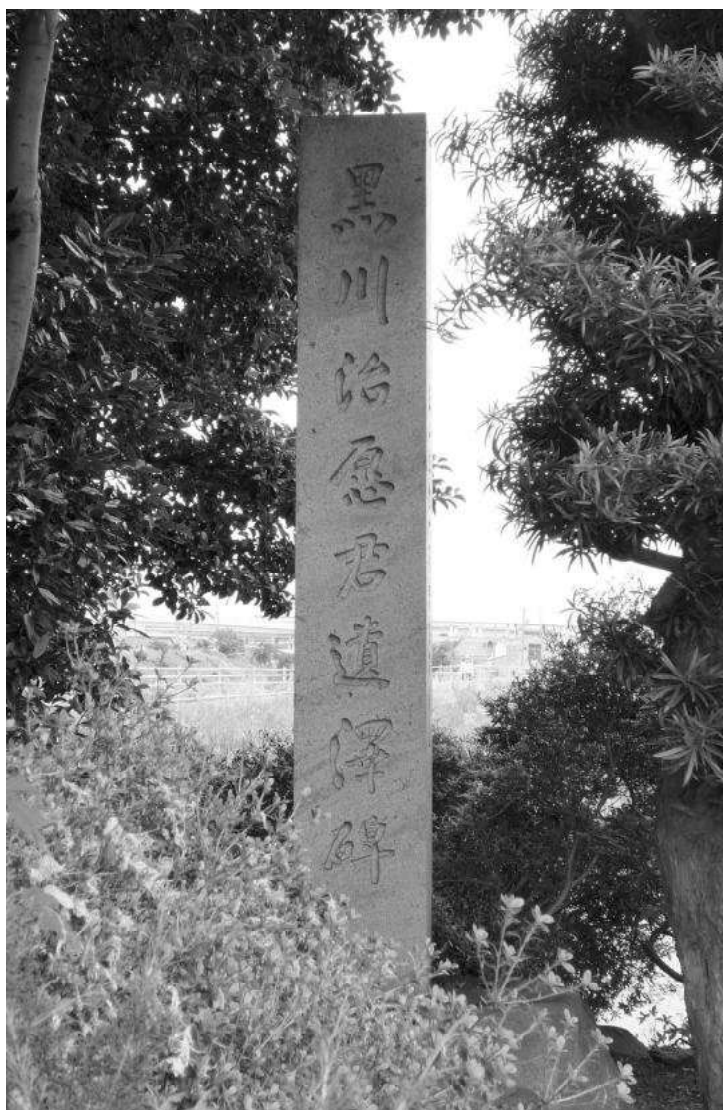 黒川治愿君遺澤碑